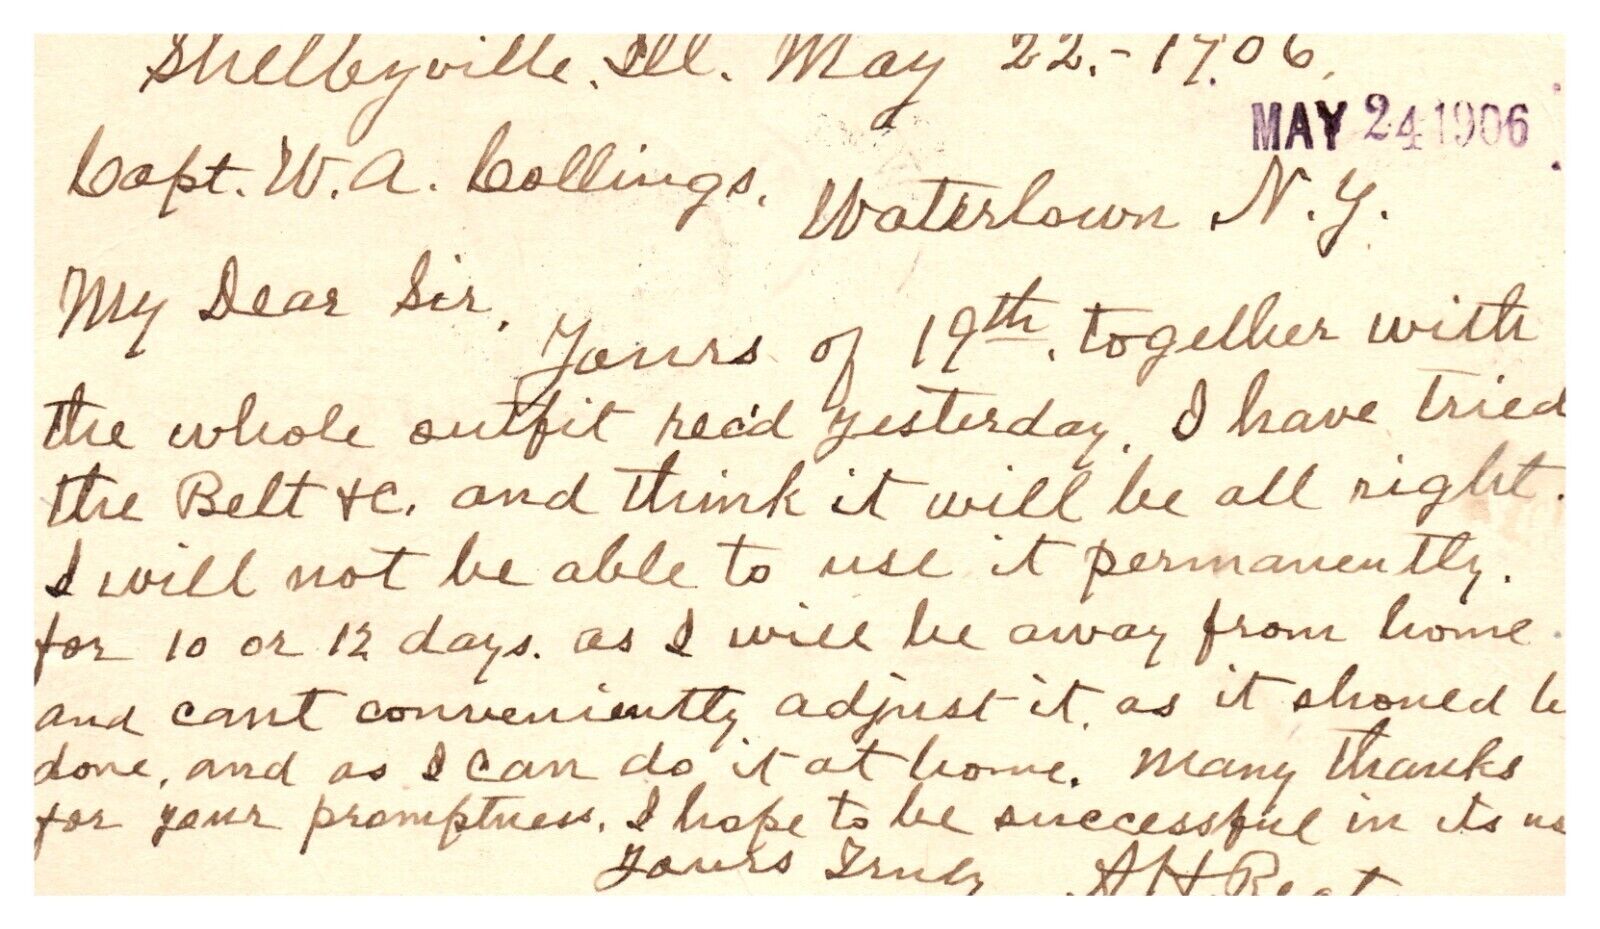 Shelbyville, Ill. May 22.-1906.
MAY 24 1906
Capt. W. A. Collings.
Watertown N.Y.
My Dear Sir,
Yours of 19th. together with
the whole outfit rec'd yesterday. I have tried
the Belt &C. and think it will be all right.
I will not be able to use it permanently.
for 10 or 12 days. as I will be away from home
and cant conveniently adjust it. as it should b
done, and as I can do it at home. Many thanks
for your promptness. I hope to be successful in its us
Yours Truly A H